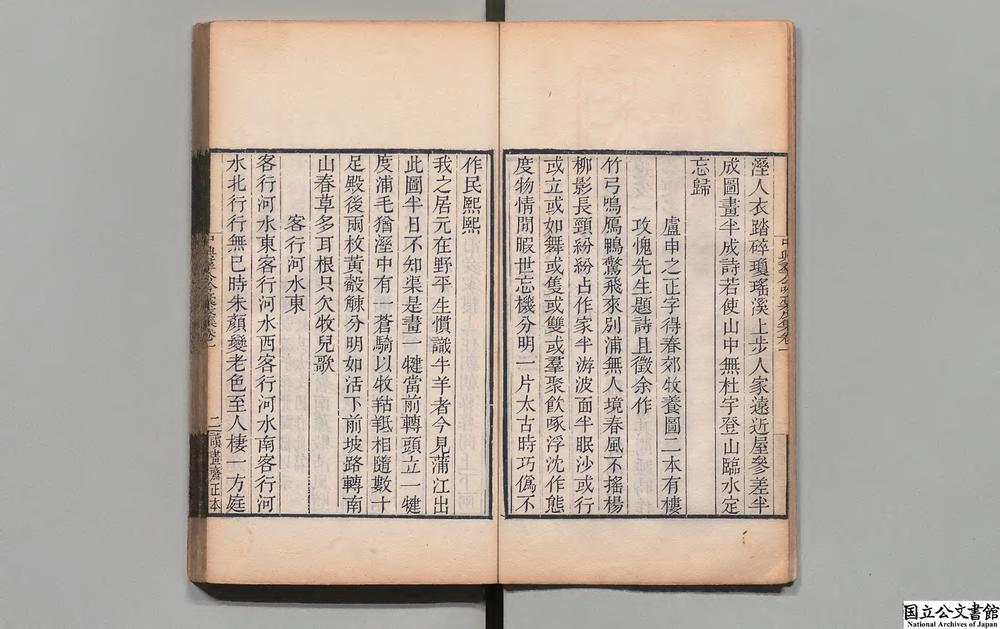 溼人衣踏碎瓊瑤溪上步人家遠近屋參差半
成圖畫半成詩若使山中無杜宇登山臨水定
忘歸
盧申之正字得春郊牧養圖二本有樓
攻愧先生題詩且徵余作
竹弓鳴鴈鴨驚飛來別浦無人境春風不搖楊
柳影長頸紛紛占作家半游波面半眠沙或行
或立或如舞或隻或雙或羣聚飲啄浮沈作態
度物情閒暇世忘機分明一片太古時巧偽不
作民熙熙
我之居元在野平生慣識牛羊者今見蒲江出
此圖半日不知渠是畫一犍當前轉頭立一犍
度浦毛猶溼中有一蒼騎以牧牯羝相隨數十
足殿後兩枚黃觳觫分明如活下前坡路轉南
山春草多耳根只欠牧兒歌
客行河水東
客行河水東客行河水西客行河水南客行河
水北行行無已時朱顏變老色至人棲一方庭
中興羣公吟藁戊集卷一
二
讀畫齋正本
国立公文書館
National Archives of Japan